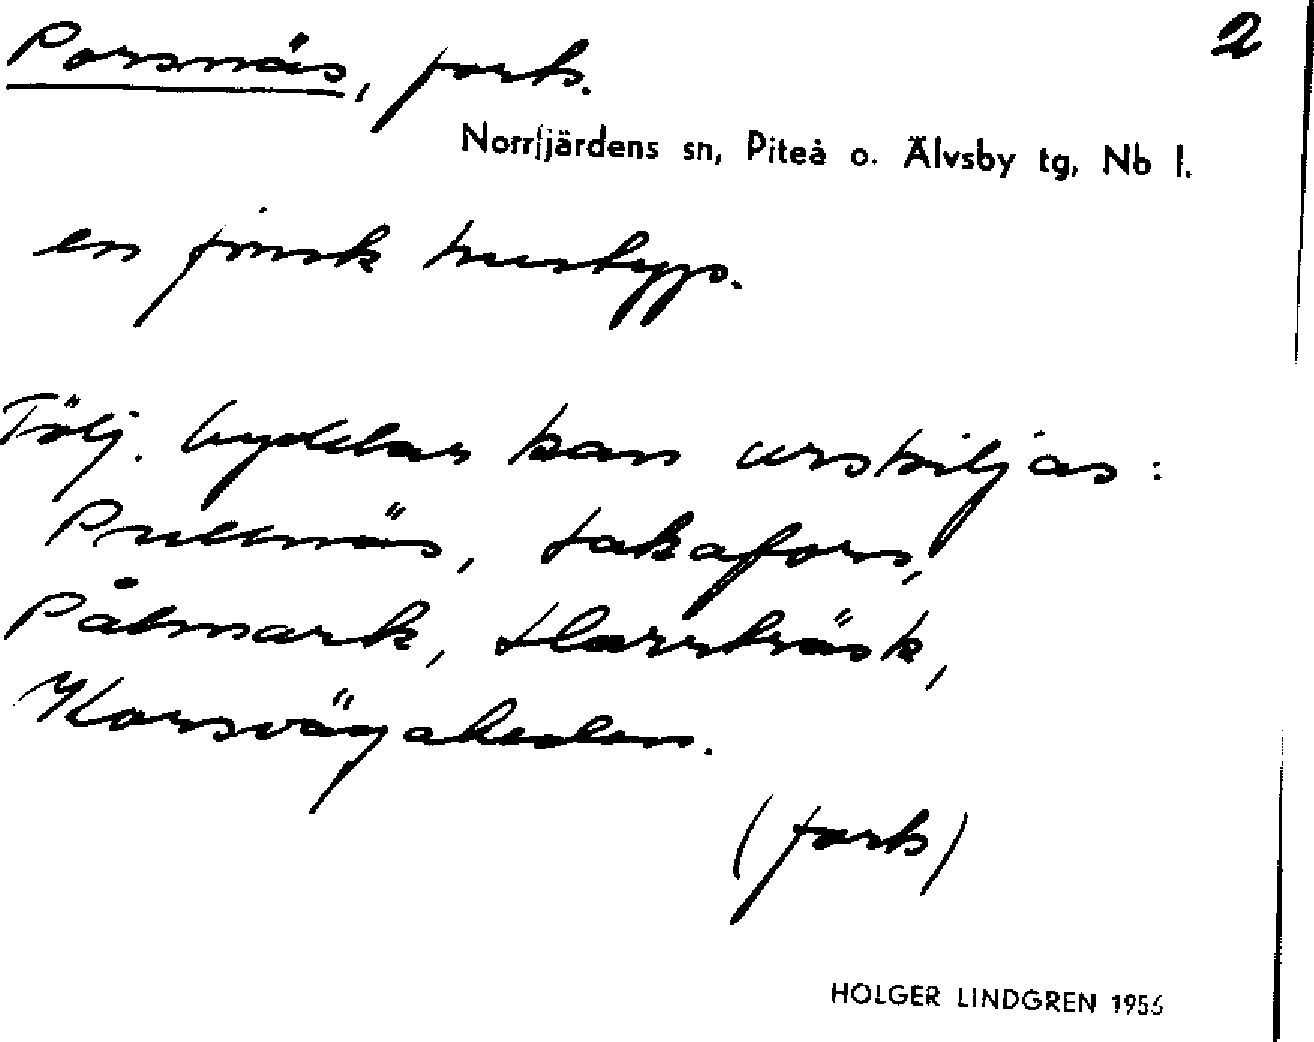 Porsnäs, forts. 2
Norrfjärdens sn, Piteå o. Älvsby tg, Nb l.
en finsk hustyp.
Följ. byddlar kan urskiljas:
Prullnäs, Lakafors,
Påtmark, Harrträsk,
Korsvägaheden.
(forts)
HOLGER LINDGREN 1956